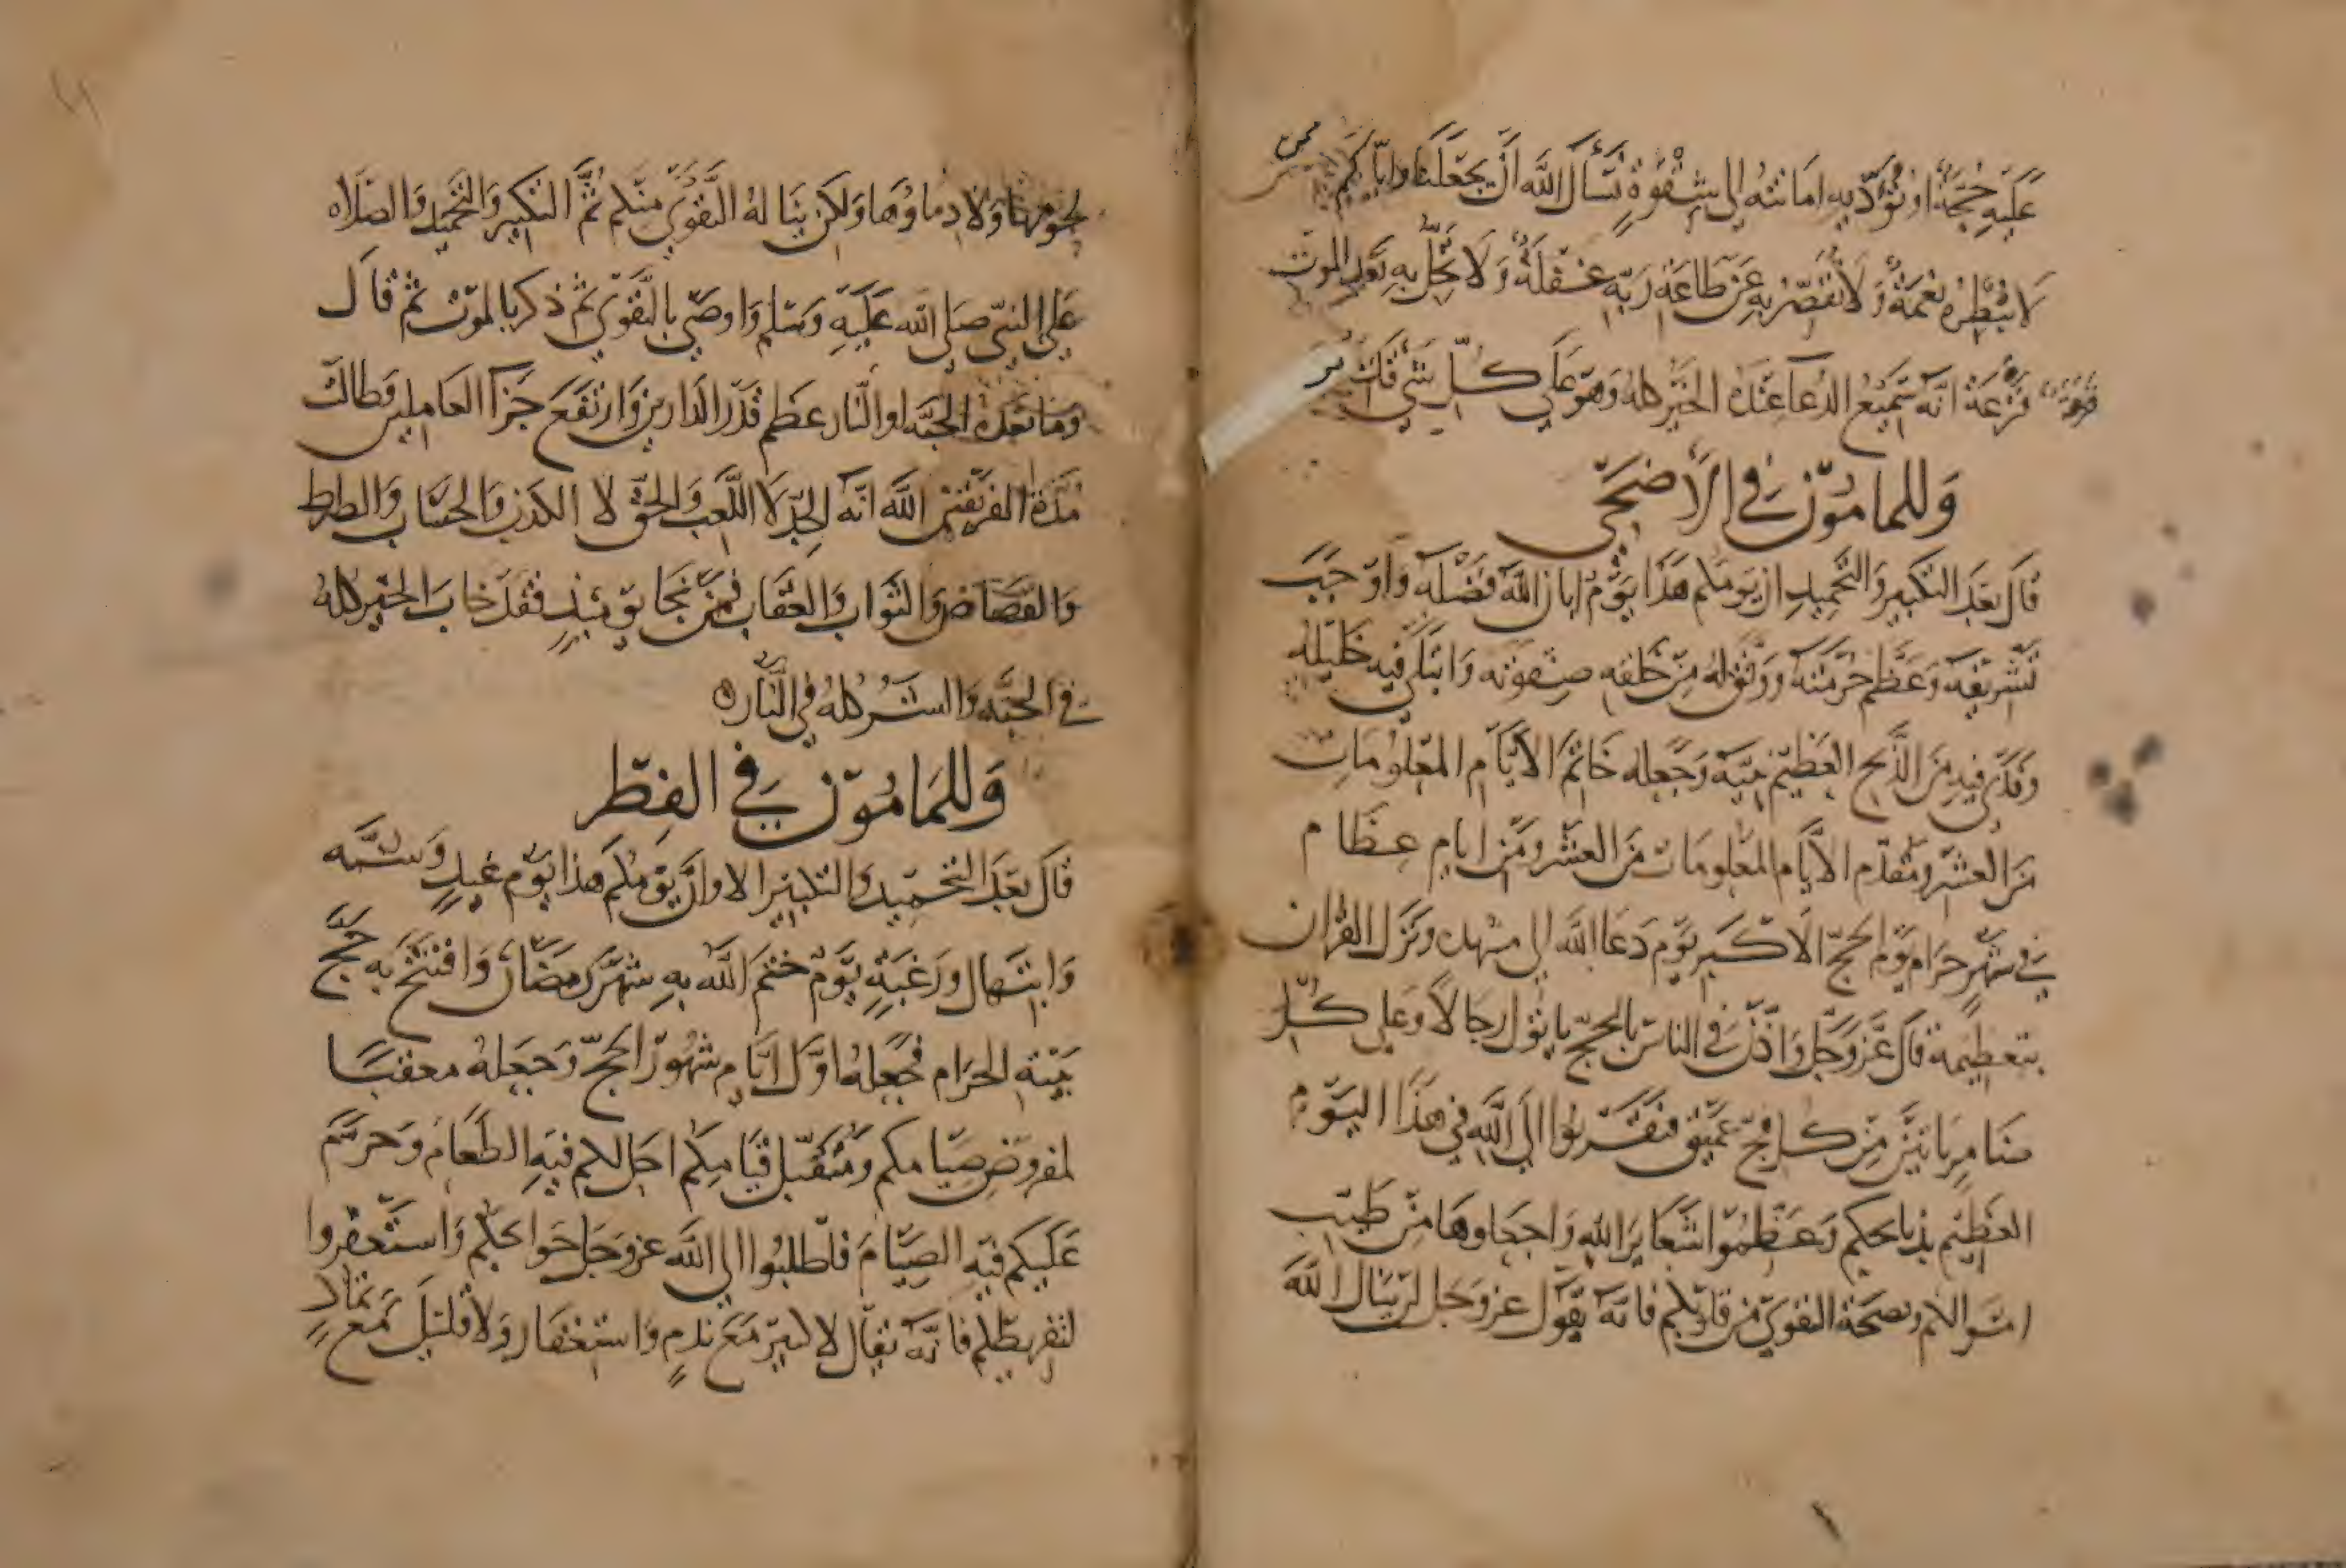 عَلَيهِ حُجَّةً او تُؤَدّيه امانته الى شِقْوَةٍ نَسْأَلُ اللَّه اَن يَجعَلَنا وايّاكم ممن
لا تبْطِره نِعْمَةٌ وَلا تُقَصِّرُ به عَن طَاعَة رَبّه غَفْلَةٌ وَلا تَحُلُّ بهِ بَعْد الموت
فَزْعَة انّه سَميْعُ الدُعآ عنْدَهُ الخيْر كلهُ وَهوَ عَلَى كُلِّ شيْ قَدير
وَللمامُوْن في الأضحَى
قالَ بَعْدَ التكبير وَالتحْميدِ ان يَومكم هَذا يَوْمٌ ابان اللَّه فَضْلَه وَاوْجَبَ
تَشْريفَه وَعَظَّم حُرْمَتَه وَوَفّقَ لهُ مِنْ خَلقه صفوته وَابتَلَى فيه خَليله
وَفَدَى فيه مِنَ الذّبح العَظيْم نبيّه وَجَعله خَاتِم الأيّام المعلومَاتِ
منَ العشْر ومُقدّم الأيّام المعلومات منَ العشْر ومَّن ايام عظام
في شَهْر حَرَام يَوْم الحجّ الأكبر يَوْم دَعَا اللَّه الى مشهده ونَزَل القرآن
بتعظيمه قالَ عَزّ وَجَلّ وَاَذّنْ في الناس بالحجّ ياتوك رِجَالاً وَعلى كُلّ
ضامِرٍ ياتيْنَ مِنْ كل فجّ عَميْق فتقَرّبُوا الى اللَّه في هذَا اليَوْم
العَظيْم بذبائحكم وَعَظِّمُوا شَعَائرَ اللهِ وَاجعَلوهَا مِنْ طَيّبِ
امْوالكم وبصحّة التقوَى مِن قلوبكم فانّه يَقوْل عز وَجَل لن ينال اللَّه
لحومُهَا وَلا دِماؤهَا وَلكن يَنَالهُ التَّقوَى منكم ثُمَّ التكبير وَالتحْميد وَالصَلَاه
عَلى النبيّ صَلى اللَّه عَلَيهِ وَسَلم وَاوصَى بالتَقوْى ثم ذكر الموْت ثم قالَ
وَمَا بَعْدَهُ الجنّه او النّار عَظم قَدْر الدّارين وَارتفَعَ جَزآ العَاملين وَطالتْ
مُدّة الفريْقيْن اللَّه انّه الجِدّ لَا اللّعب وَالحقّ لا الكذب وَالحِسَاب وَالصراط
وَالقصَاص وَالثوَاب وَالعقَاب فمَنْ نَجا يوْمَئذٍ فقد خاب الخيْر كلهُ
في الجنّه وَالشرُ كلهُ في النّاره
وَللمَامُوْن في الفِطْر
قالَ بَعْدَ التحْميْد وَالتكبيْر الا وان يَوْمكم هَذا يَوْم عيدٍ وَسنّه
وَابْتهال ورَغبَةٍ يَوْم ختم اللَّه بهِ شهْرَ رَمضَان وَافتتحَ به حَجّ
بَيْته الحرَام فجَعلهُ اوّل ايّام شهُوْر الحجّ وَجَعلهُ معقبًا
لمفروض صيَامكم وَمُتقَبّل قيَامِكم احَل لكم فيْه الطعَام وَحرّم
عَلَيكم فيْه الصيَام فَاطلبُوا الى اللَّه عز وَجَل حَوائجكم وَاستَغْفروا
لتفريطكم فانّه يقال لا كبيْر مَع ندمٍ وَاستغفار وَلا قليْل مَع تمادٍ